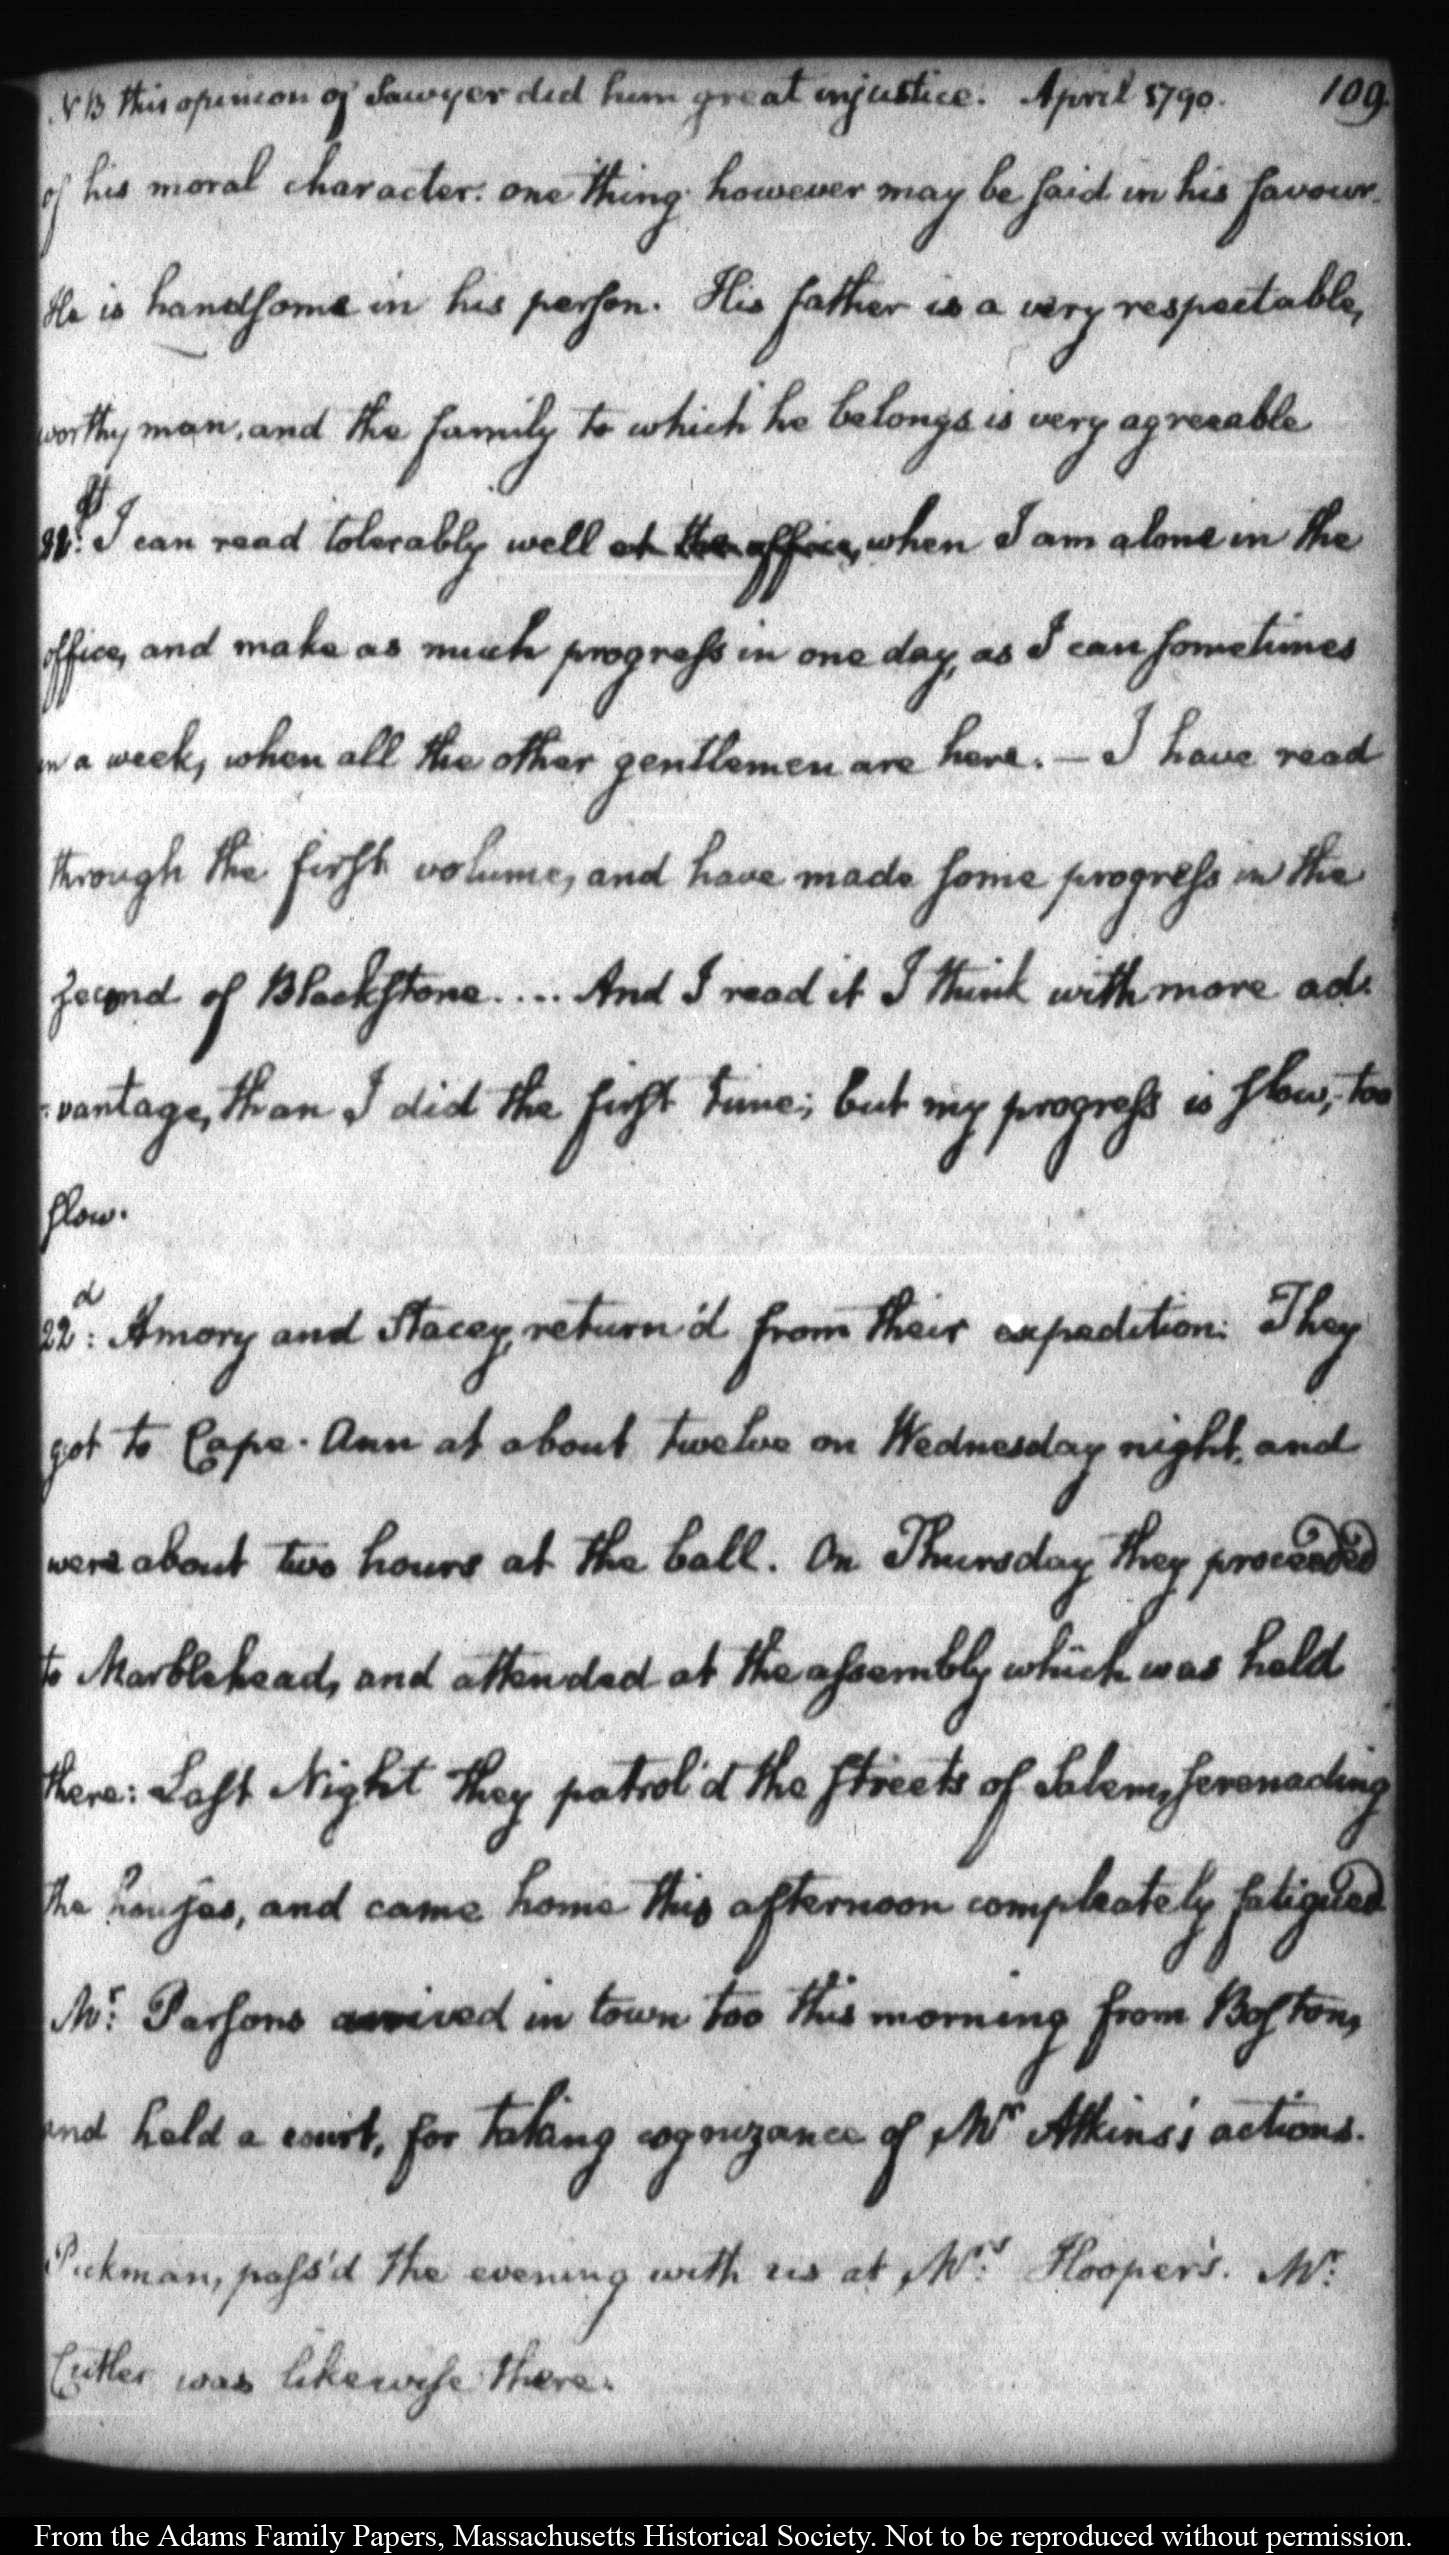 NB this opinion of Sawyer did him great injustice. April 1790. 109.
of his moral character: one thing however may be said in his favour.
He is handsome in his person. His father is a very respectable,
worthy man, and the family to which he belongs is very agreeable
21st: I can read tolerably well at the office, when I am alone in the
office, and make as much progress in one day, as I can sometimes
in a week, when all the other gentlemen are here. — I have read
through the first volume, and have made some progress in the
second of Blackstone.... And I read it I think with more ad-
-vantage, than I did the first time; but my progress is slow, too
slow.
22d: Amory and Stacey, return'd from their expedition: They
got to Cape-Ann at about twelve on Wednesday night, and
were about two hours at the ball. On Thursday they proceeded
to Marblehead, and attended at the assembly which was held
there: Last Night they patrol'd the streets of Salem, serenading
the houses, and came home this afternoon compleately fatigued
Mr: Parsons arrived in town too this morning from Boston,
and held a court, for taking cognizance of Mr Atkins's actions.
Pickman, pass'd the evening with us at Mrs: Hooper's. Mr:
Cutler was likewise there.
From the Adams Family Papers, Massachusetts Historical Society. Not to be reproduced without permission.